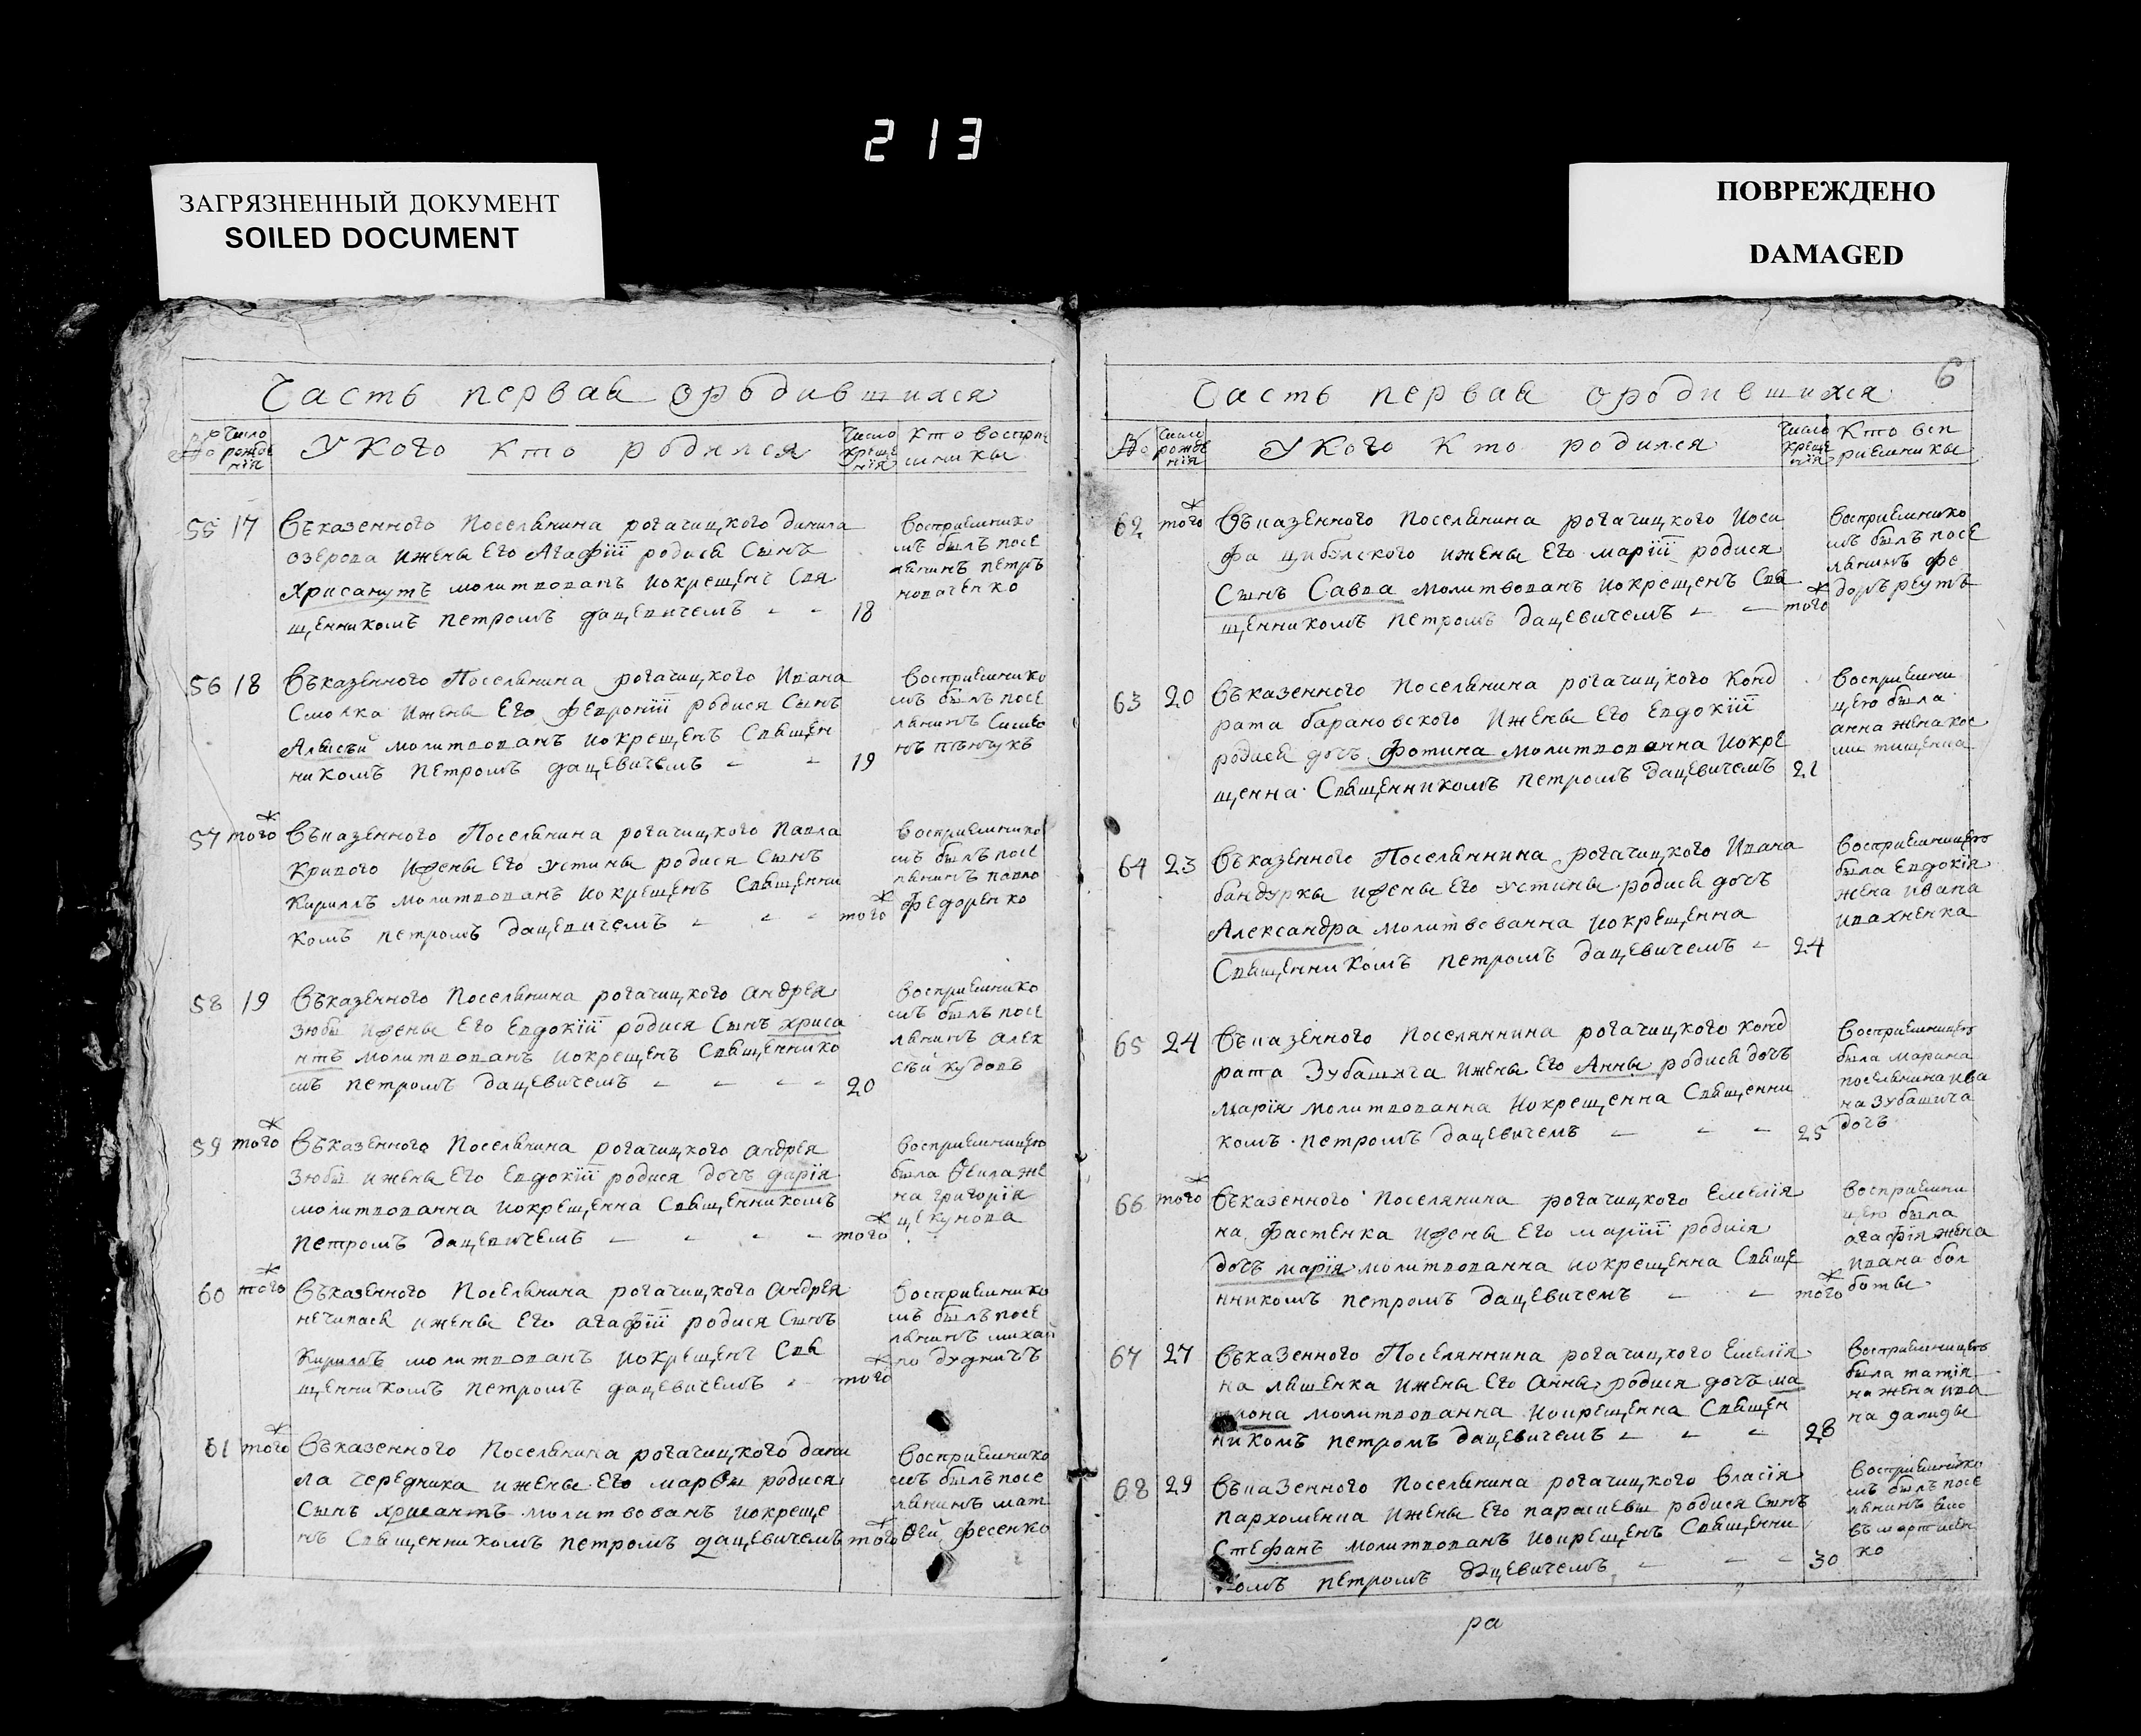 213
ЗАГРЯЗНЕННЫЙ ДОКУМЕНТ
SOILED DOCUMENT
ПОВРЕЖДЕНО
DAMAGED
Часть первая ородившихся
Число рожденїя
У Кого кто родился
Число крещенїя
Кто восприемники
55 17
Въказенного Поселянина рогачицкого данила
озерова ижены Его Агафіи родися Сынъ
Хрисанутъ молитвованъ иокрещенъ Свя
щенникомъ петромъ дацевичемъ - - 18
Восприемнико
мъ былъ посе
лянинъ петръ
новаченко
56 18
Въказенного Поселянина рогачицкого Ивана
Смолка ижены Его февронїи родися Сынъ
Алексъй молитвованъ иокрещенъ Священ
никомъ петромъ дацевичемъ - - 19
Восприемнико
мъ былъ посе
лянинъ
57 того
Въказенного Поселянина рогачицкого павла
Кривого ижены Его Устины родися Сынъ
Кириллъ молитвованъ иокрещенъ Священни
комъ петромъ дацевичемъ - - - того
восприемнико
мъ былъ посе
лянинъ павло
федоренко
58 19
Въказенного Поселянина рогачицкого андрея
Зюбы ижены Его Евдокїи родися Сынъ хриса
нтъ молитвованъ иокрещенъ Священнико
мъ петромъ дацевичемъ - - - - 20
восприемнико
мъ былъ посе
лянинъ алек
сѣй кудовъ
59 того
Въказенного Поселянина рогачицкого андрея
Зюбы ижены Его Евдокїи родися дочъ дарїя
молитвованна иокрещенна Священникомъ
петромъ дацевичемъ - - - - того
Восприемницею
была Ѳекла же
на григорїя
цекунова
60 того
Въказенного Поселянина рогачицкого андрея
нечипаск ижены Его агафїи родися Сынъ
Кириллъ молитвованъ иокрещенъ Свя
щенникомъ петромъ дацевичемъ - - того
Восприемнико
мъ былъ посе
лянинъ михай
ло дудничъ
61 того
Въказенного Поселянина рогачицкого дани
ла чередника ижены Его марѳы родися
Сынъ хрисантъ молитвованъ иокреще
нъ Священникомъ петромъ дацевичемъ того
Восприемнико
мъ былъ посе
лянинъ мат
Ѳей фесенко
6
Часть первая ородившихся
№
Число рожденїя
У Кого Кто родился
Число крещенїя
Кто восприемники
62 того
Въказенного Поселянина рогачицкого Иоси
фа цибулского ижены Его марїи родися
Сынъ Савва молитвованъ иокрещенъ Свя
щенникомъ петромъ дацевичемъ - - того
Восприемнико
мъ былъ посе
лянинъ фе
доръ реутъ
63 20
Въказенного Поселянина рогачицкого Конд
рата барановского ижены Его Евдокїи
родися дочъ фотина молитвованна иокре
щенна Священникомъ петромъ дацевичемъ 21
Восприемни
цею была
анна жена кос
ми тищенка
64 23
Въказенного Поселяннина рогачицкого Ивана
бандурки ижены Его Устины родися дочъ
Александра молитвованна иокрещенна
Священникомъ петромъ дацевичемъ - 24
Восприемницею
была Евдокїя
жена ивана
ивахненка
65 24
Въказенного Поселяннина рогачицкого конд
рата Зубашича ижены Его Анны родися дочъ
Марїя молитвованна иокрещенна Священни
комъ петромъ дацевичемъ - - - 25
Восприемницею
была марина
поселянина ива
на зубашича
дочъ
66 того
Въказенного Поселянина рогачицкого Емелїя
на фастенка ижены Его марїи родися
дочъ марїя молитвованна иокрещенна Свяще
нникомъ петромъ дацевичемъ - - того
Восприемни
цею была
агафїя жена
ивана бол
боты
67 27
Въказенного Поселяннина рогачицкого Емелїя
на ляшенка ижены Его Анны родися дочъ ма
трона молитвованна иокрещенна Священ
никомъ петромъ дацевичемъ - - - 28
Восприемницею
была татїя
на жена ива
на далиды
68 29
Въказенного Поселянина рогачицкого Власїя
пархоменка ижены Его параскевы родися Сынъ
Стефанъ молитвованъ иокрещенъ Священни
комъ петромъ дацевичемъ - - - 30
Восприемнико
мъ былъ посе
лянинъ
ко
ра